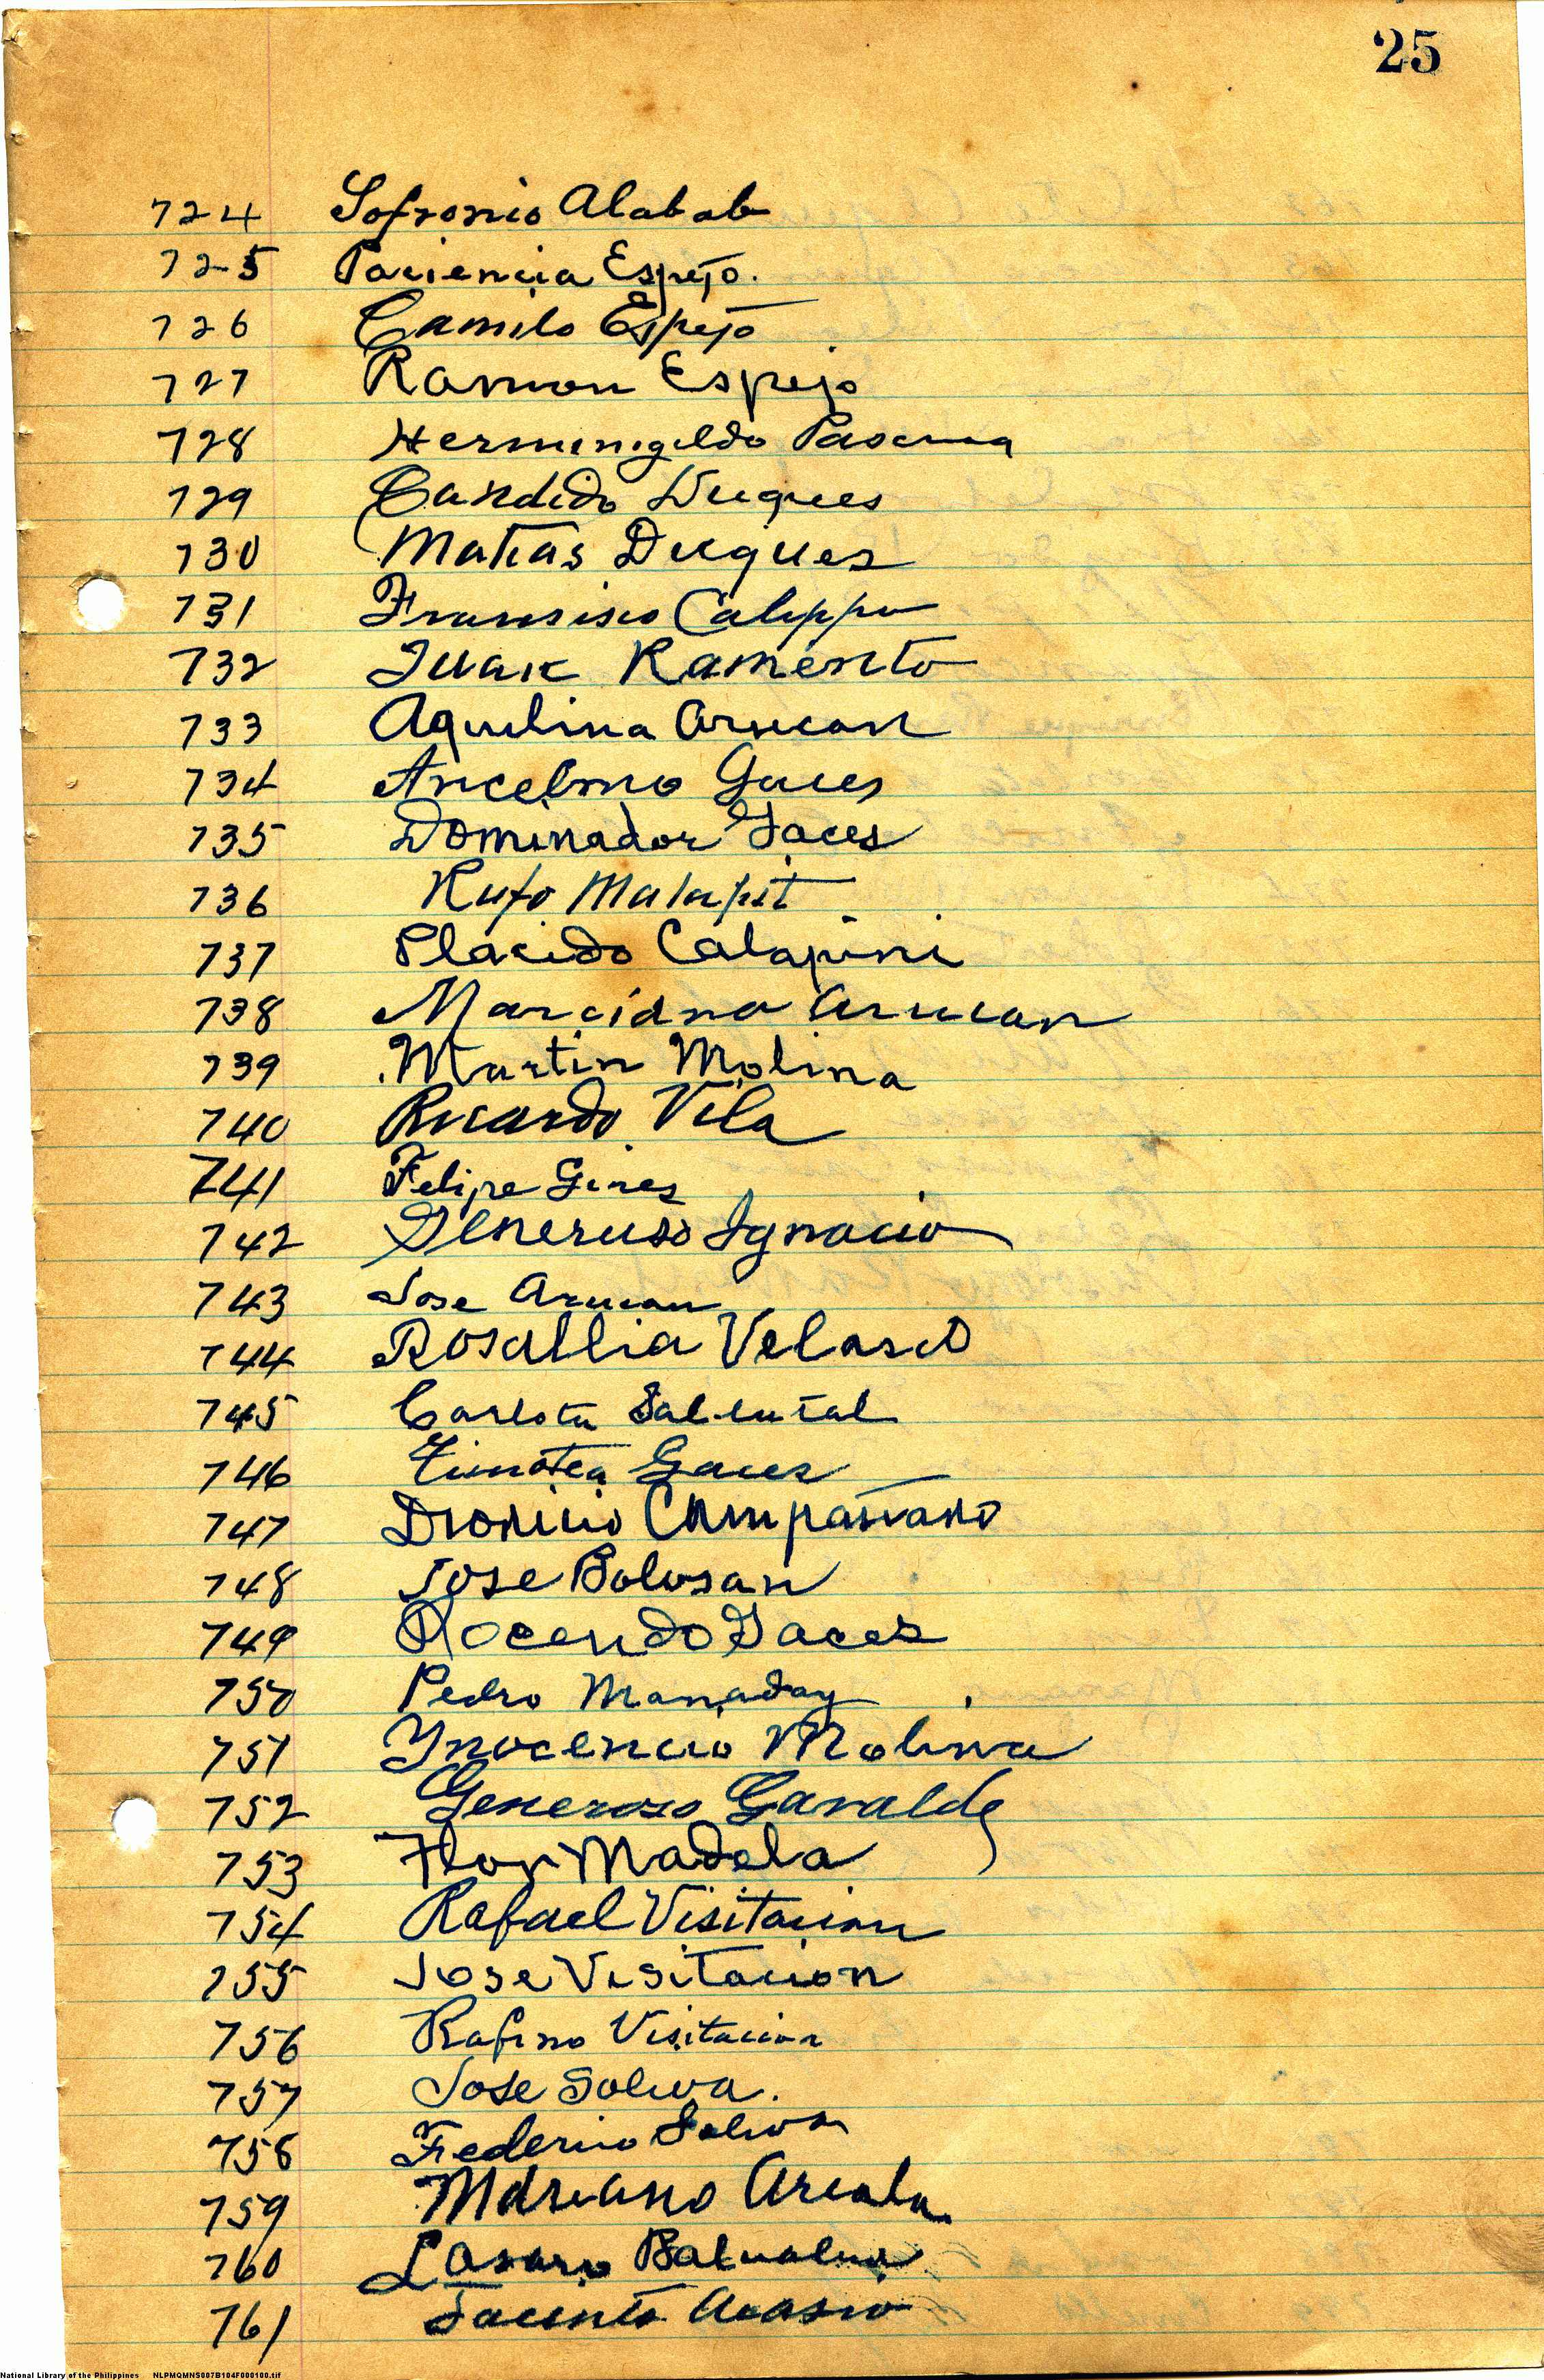 25
724 Sofronio Alabab
725 Paciencia Espejo.
726 Camilo Espejo
727 Ramon Espejo
728 Hermenigildo Pascua
729 Candido Duques
730 Matias Duques
731 Fransisco Calippo
732 Juan Ramento
733 Aquilina Arucan
734 Ancelmo Gaces
735 Dominador Gaces
736 Rufo Malapit
737 Placido Calapini
738 Marciano Arucan
739 Martin Molina
740 Ricardo Vila
741 Felipe Gines
742 Generuso Ignacio
743 Jose Arucan
744 Rosallia Velasco
745 Carlota
746 Timotea Gaces
747 Dionicio Campañano
748 Jose Bolosan
749 Rocendo Gaces
750 Pedro Manaday
751 Ynocencio Molina
752 Generoso Garalde
753 Flor Madela
754 Rafael Visitacion
755 Jose Visitacion
756 Rafino Visitacion
757 Jose Soliva.
758 Federico Soliva
759 Mariano Arcala
760 Lasaro
761 Jacinto Acasio
National Library of the Philippines NLPMQMNS007B104F000100.tif